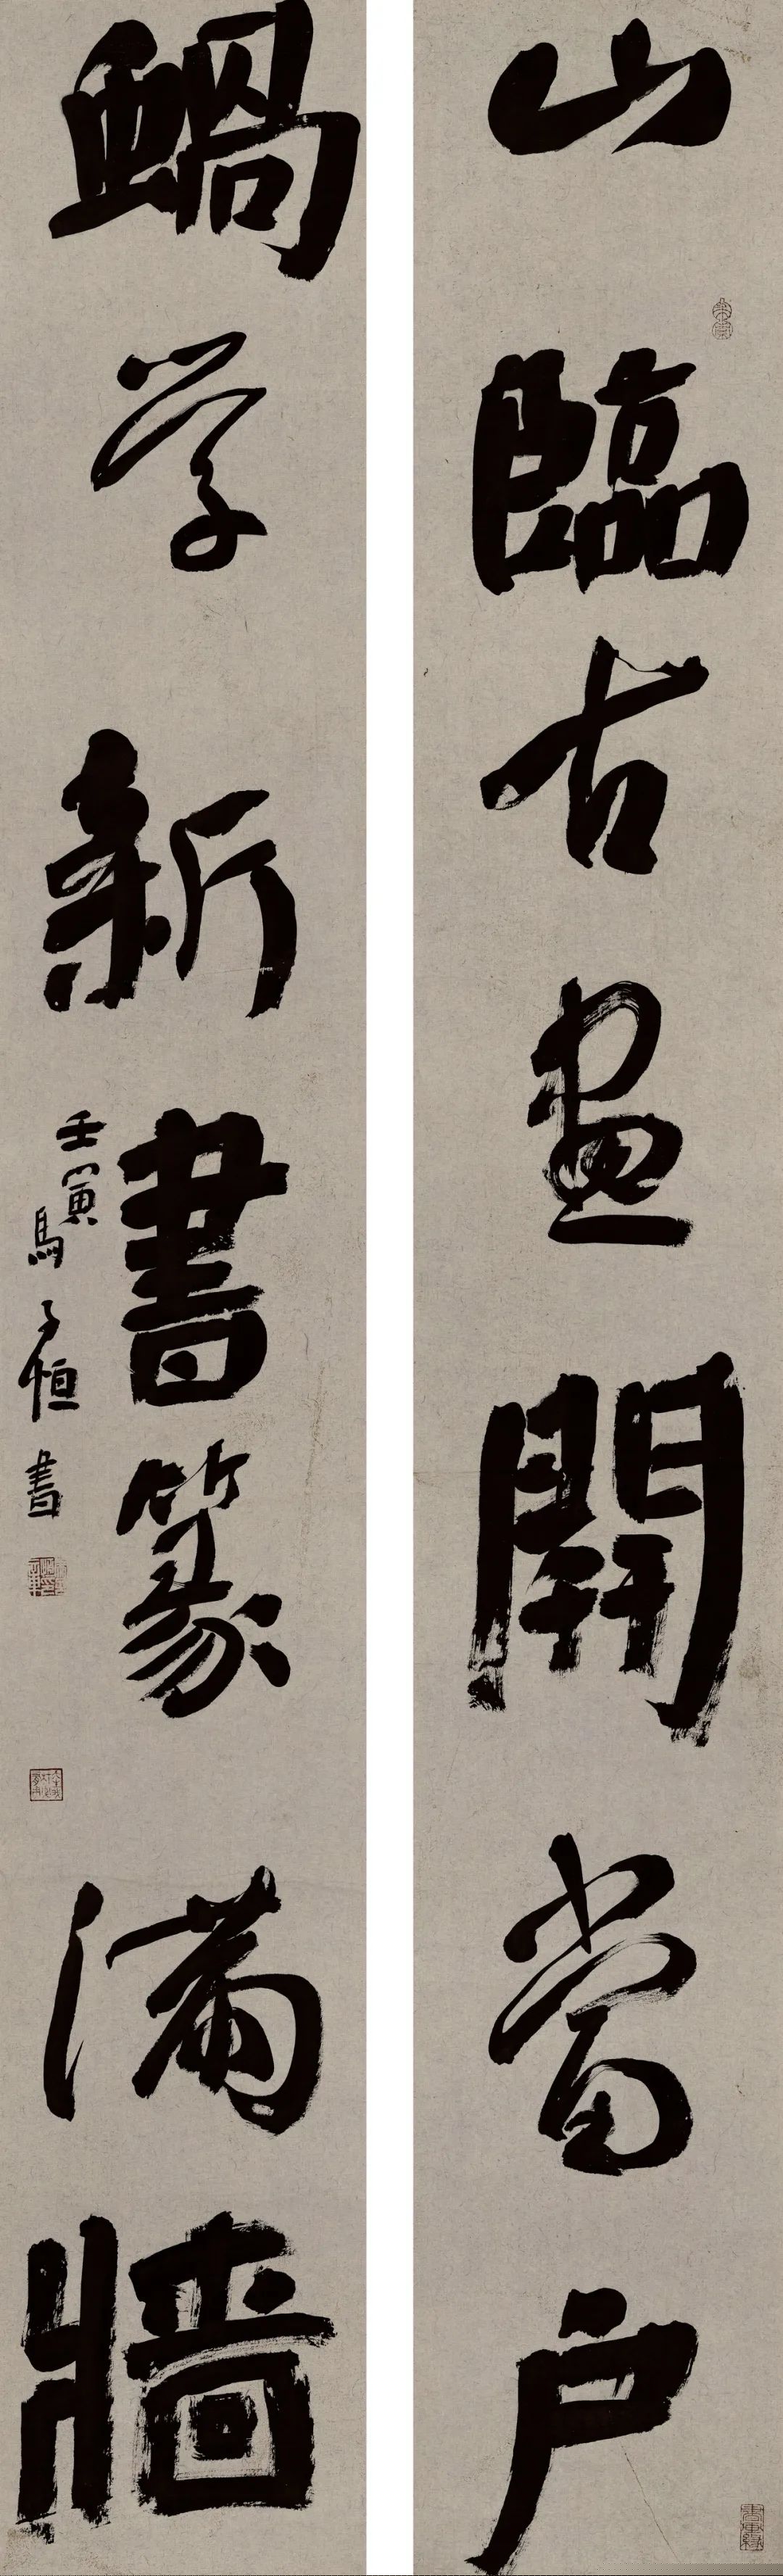 山臨古畫開當户
蝸学新書篆滿牆
壬寅馬子恒書